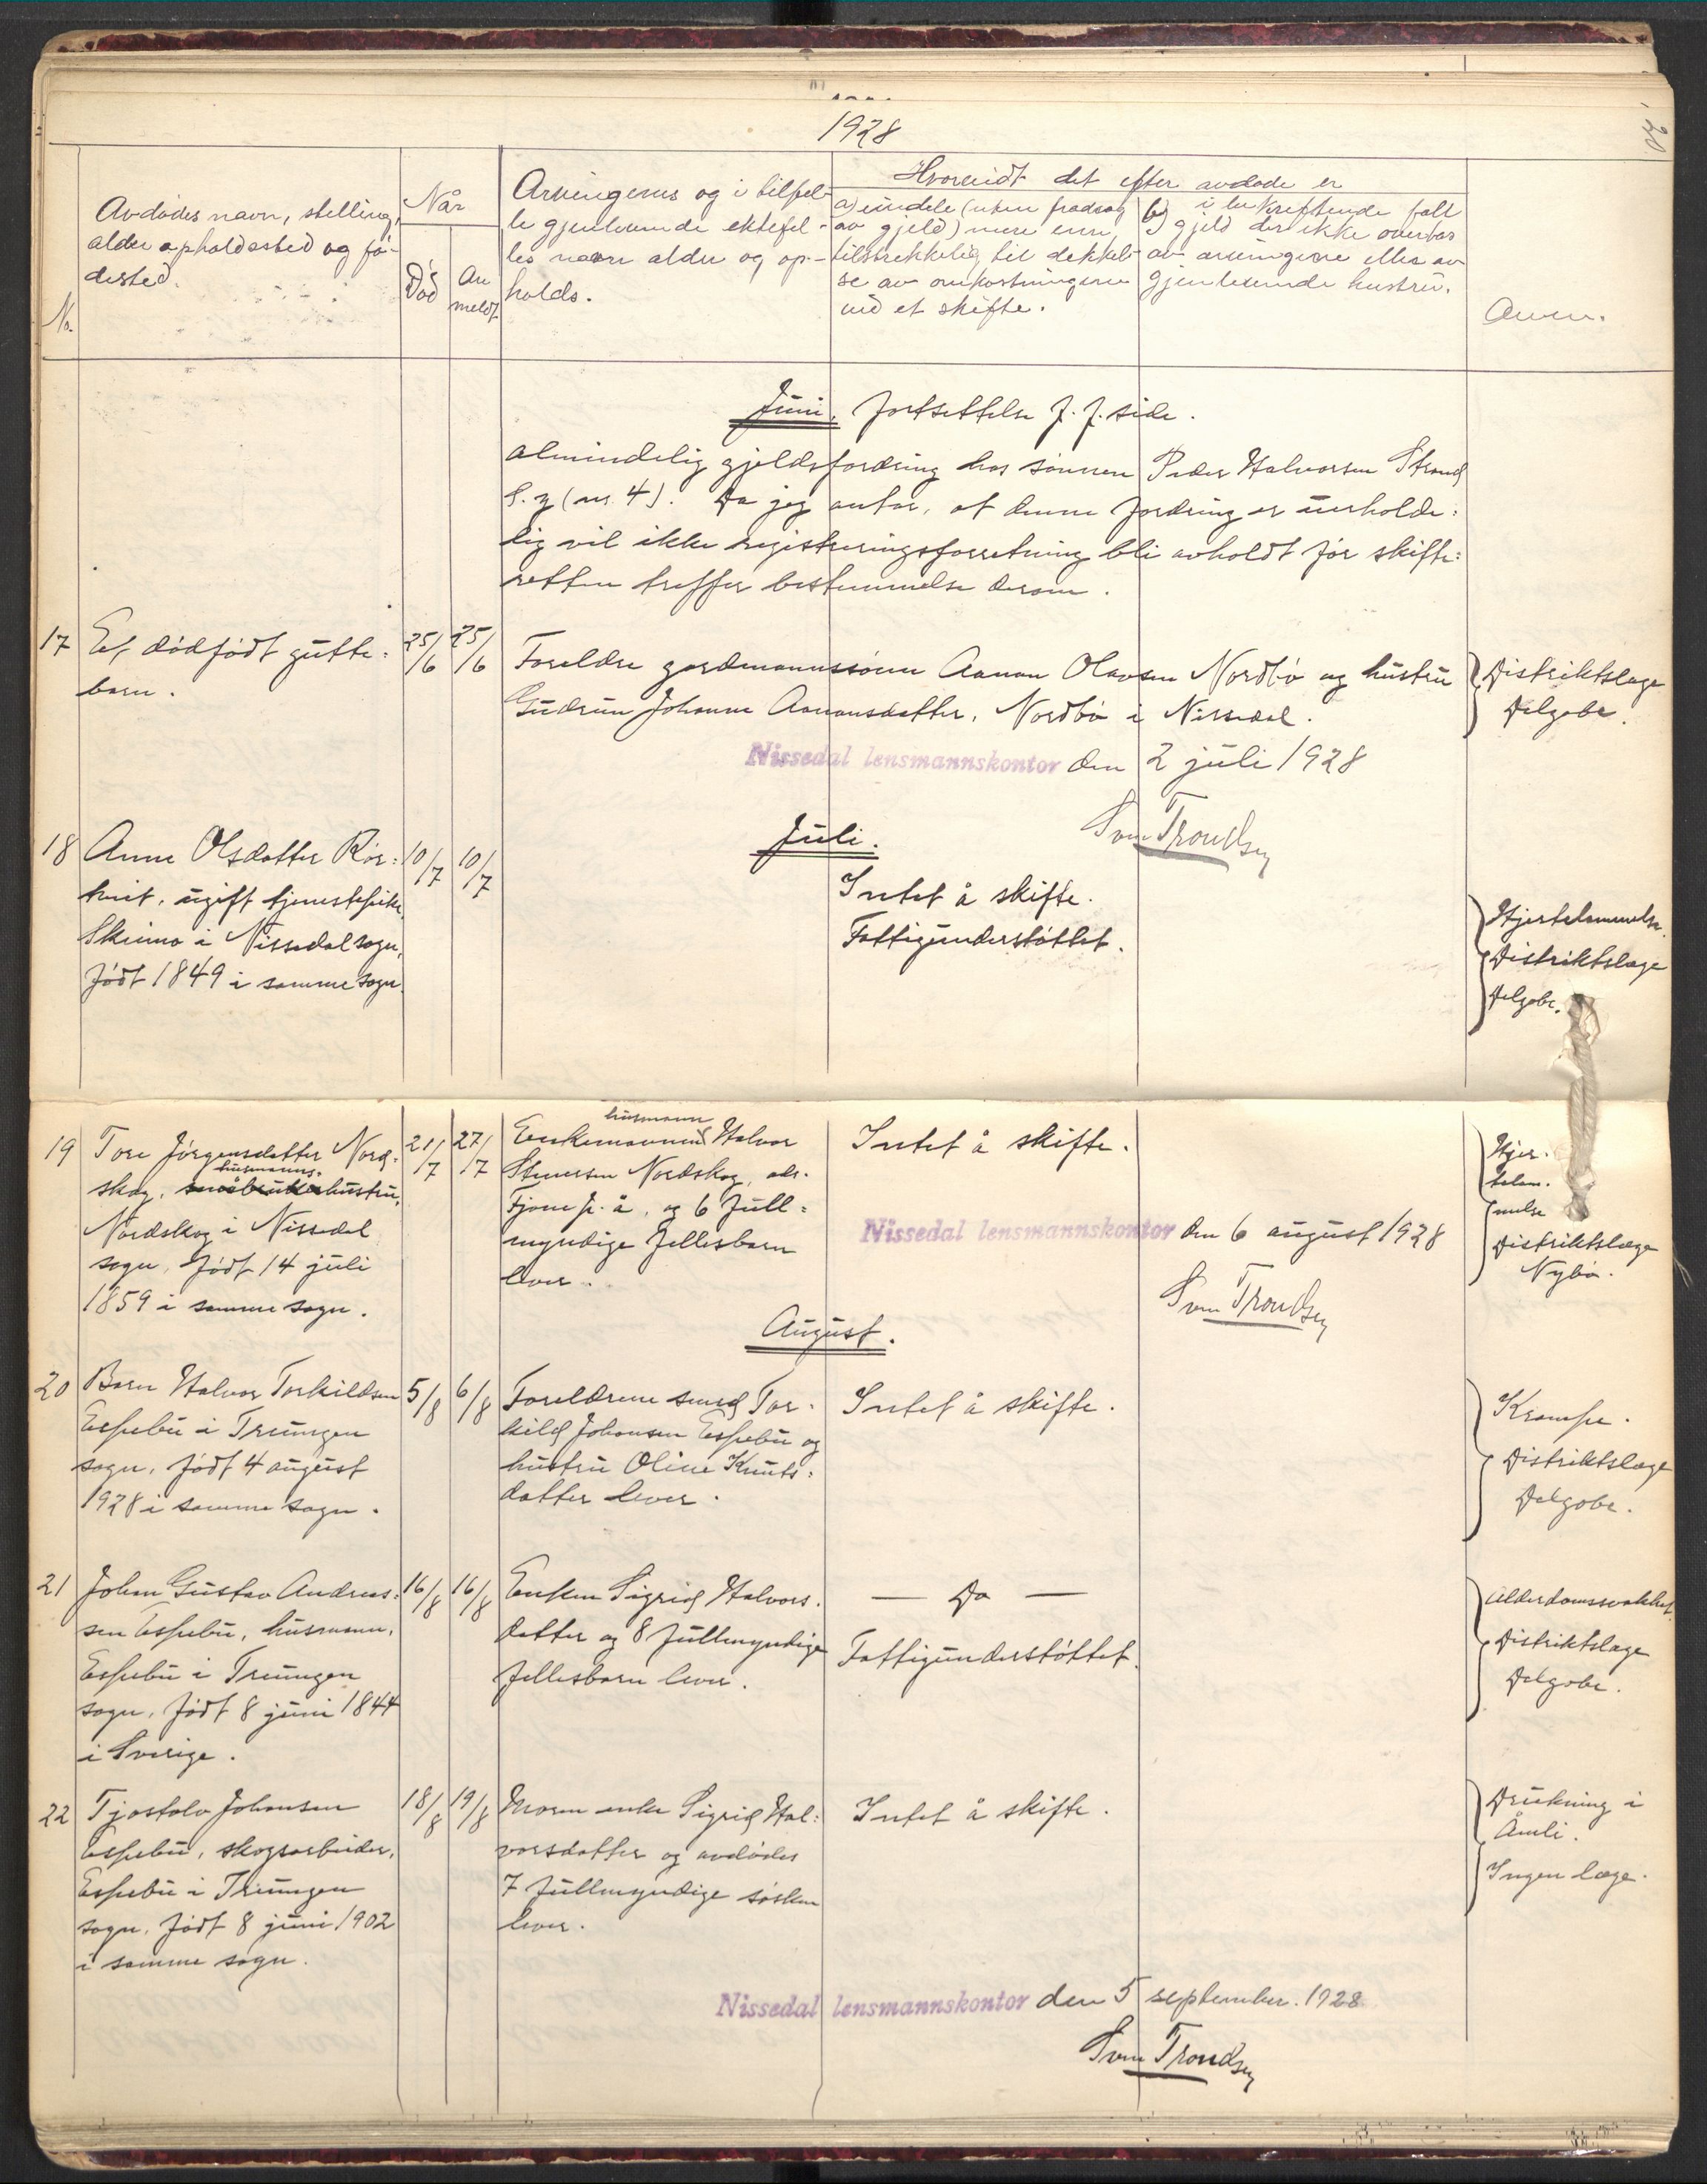 1928
No.
Avdødes navn, stilling,
alder opholdssted og fø-
dested.
Når
Død
An
meldt
Arvingenes og i tilfel-
le gjenlevende ektefel-
les navn alder og op-
holds.
Hvorvidt det efter avdøde er
a) eiendele (uten fradrag
av gjeld) mere enn
tilstrekkelig til dekkel-
se av omkostningene
ved et skifte.
b) i bekreftende fall
gjeld der ikke overtas
av arvingene eller av
gjenlevende hustru.
Anm.
Juni. fortsettelse f. f. side.
almindelig gjeldsfordring hos sønnen Peder Halvorsen Strand
s. g (nr. 4). Da jeg antar, at denne fordring er uerholde-
lig vil ikke registreringsforretning bli avholdt før skifte-
retten treffer bestemmelse derom.
17 Et dødfødt gutte-
barn.
25/6 25/6
Foreldre gardmannssønn Aanon Olavsen Nordbø og hustru
Gudrun Johanne Aanonsdatter, Nordbø i Nissedal.
Distriktslæge
Delgobe.
Nissedal lensmannskontor den 2 juli 1928
Sven Trondsen
Juli.
18 Anne Olsdatter Rør-
hvit, ugift tjenestepike
Skeimo i Nissedal sogn,
født 1849 i samme sogn.
10/7 10/7
Intet å skifte.
Fattigunderstøttet.
Hjertelammelse.
Distriktslæge
Delgobe.
19 Tore Jørgensdatter Nord-
husmanns-
skog, småbrukerhustru,
Nordskog i Nissedal
sogn, født 14 juli
1859 i samme sogn.
21/7 27/7
husmann
Enkemannen Halvor
Steinersen Nordskog, adr.
Fjone p. å, og 6 full-
myndige fellesbarn
lever.
Intet å skifte.
Hjer-
telam-
melse
Distriktslæge
Nybø.
Nissedal lensmannskontor den 6 august 1928
Sven Trondsen
August.
20 Barn Halvor Torkildsen
Espebu i Treungen
sogn, født 4 august
1928 i samme sogn.
5/8 6/8
Foreldrene smed Tor-
kild Johansen Espebu og
hustru Oline Knuts-
datter lever.
Intet å skifte.
Krampe.
Distriktslæge
Delgobe.
21 Johan Gustav Andreas-
sen Espebu, husmann,
Espebu i Treungen
sogn, født 8 juni 1844
i Sverige.
16/8 16/8
Enken Sigrid Halvors-
datter og 8 fullmyndige
fellesbarn lever.
— Do —
Fattigunderstøttet.
Alderdomssvakhet.
Distriktslæge
Delgobe.
22 Tjostolv Johansen
Espebu, skogsarbeider,
Espebu i Treungen
sogn, født 8 juni 1902
i samme sogn.
18/8 19/8
Moren enke Sigrid Hal-
vorsdatter og avdødes
7 fullmyndige søsken
lever.
Intet å skifte.
Drukning i
Åmli.
Ingen læge.
Nissedal lensmannskontor den 5 september 1928
Sven Trondsen